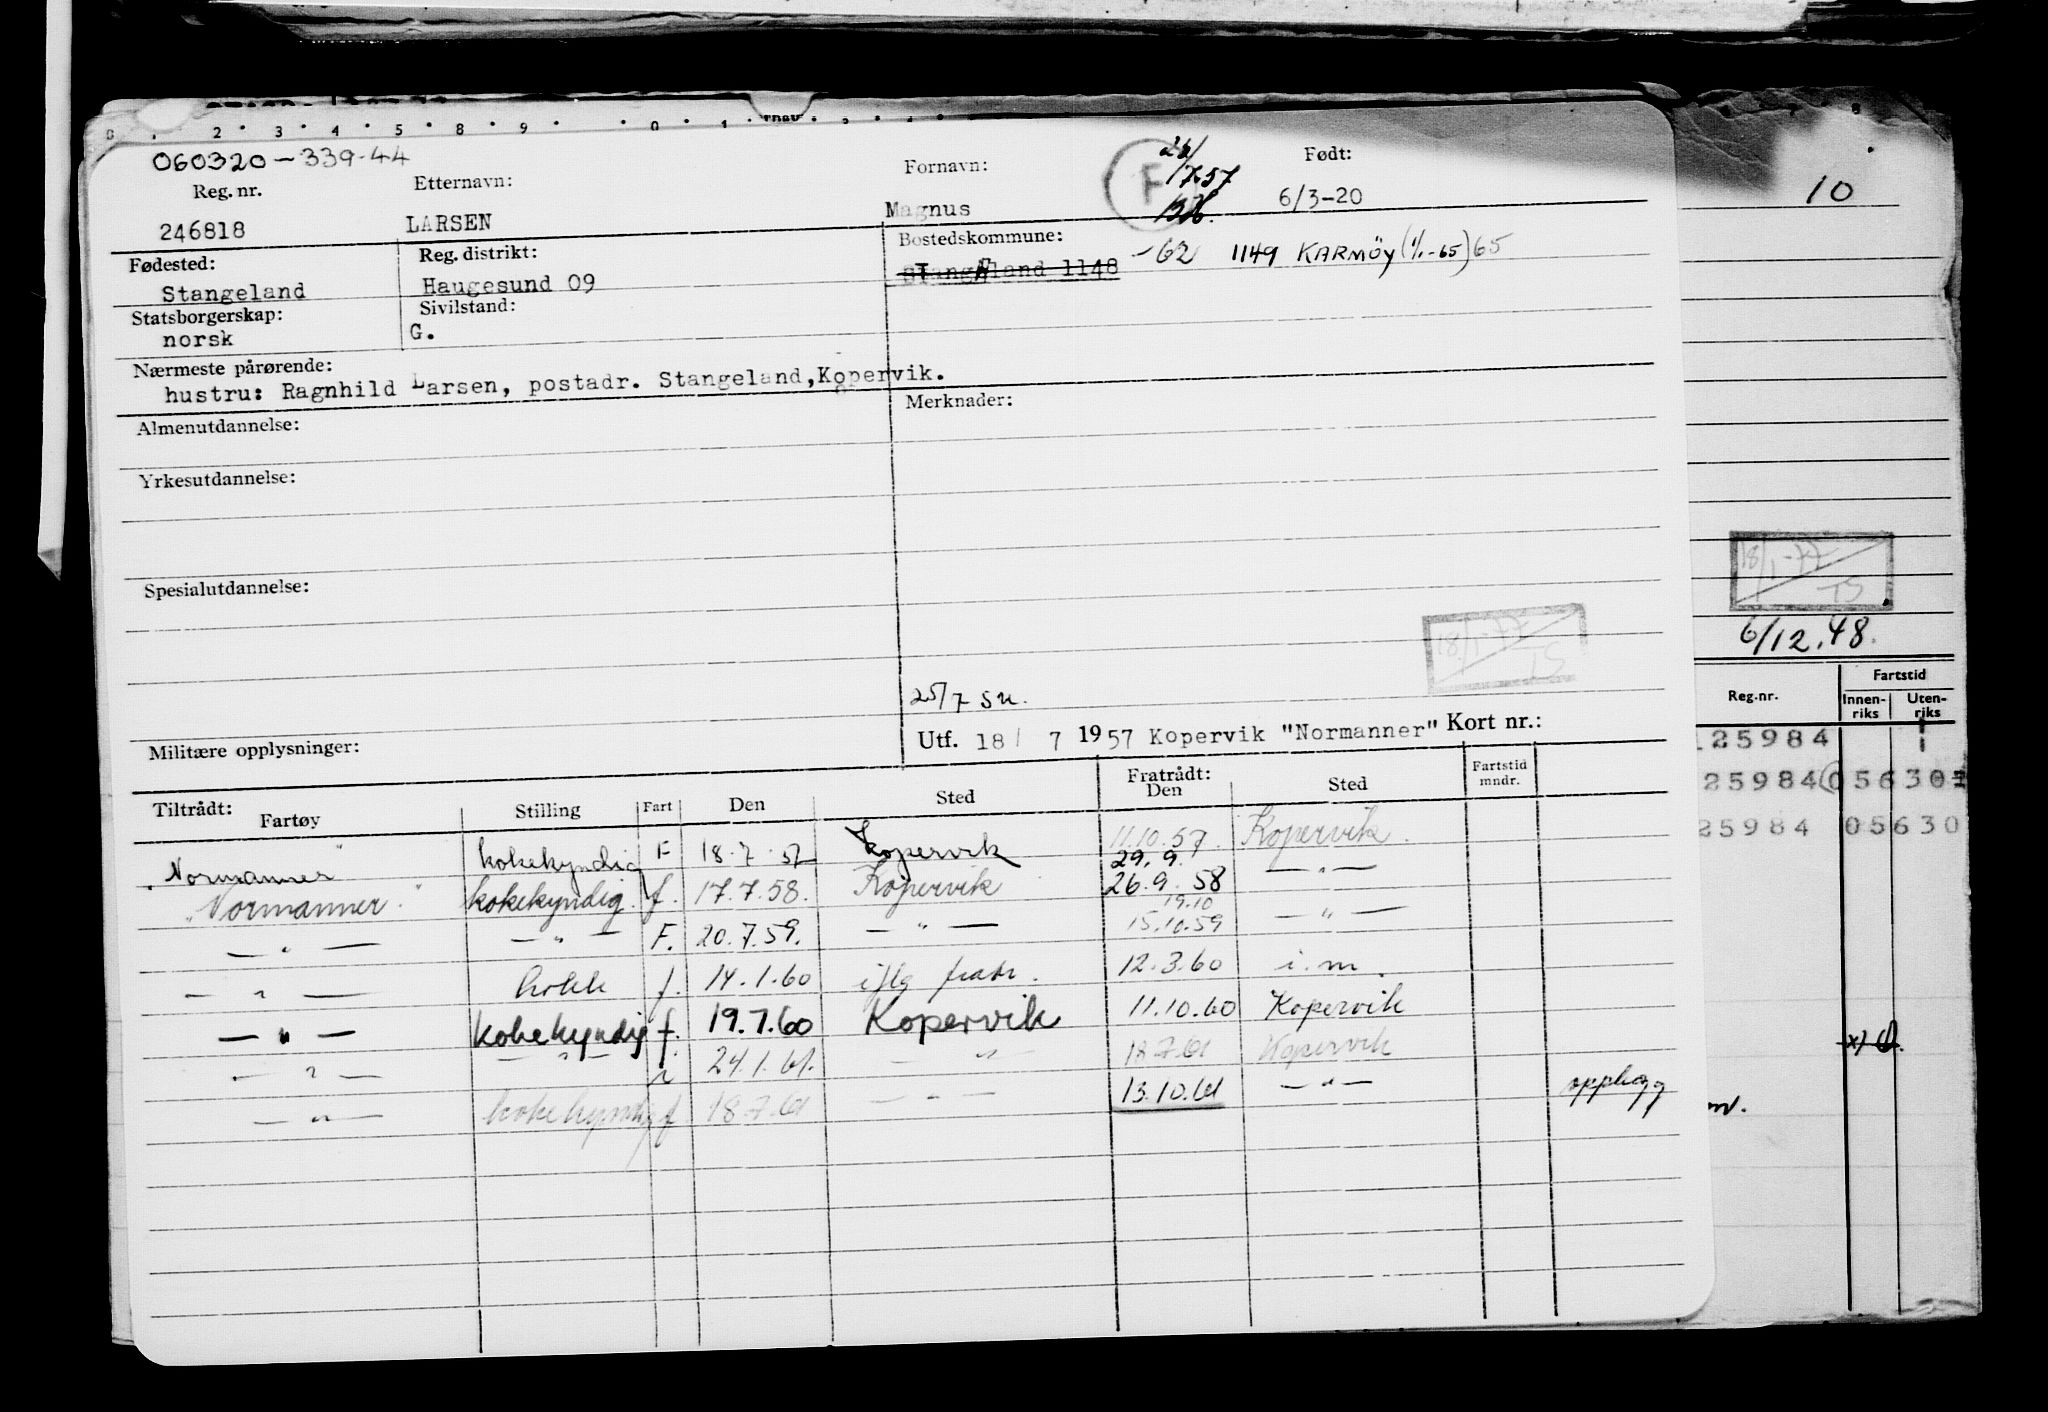 060320-339-44
Reg. nr.
Etternavn:
Fornavn:
F
26/
7.57
Født:
246818
LARSEN
Magnus
6/3-20
Fødested:
Reg. distrikt:
Bostedskommune:
Stangeland
Haugesund 09
Stangeland 1148
-62
1149 KARMÖY (1/1-65) 65
Statsborgerskap:
Sivilstand:
norsk
G.
Nærmeste pårørende:
hustru: Ragnhild Larsen, postadr. Stangeland, Kopervik.
Almenutdannelse:
Merknader:
Yrkesutdannelse:
Spesialutdannelse:
18/1-77
TS
25/7 su.
Militære opplysninger:
Utf. 18/ 7 1957 Kopervik "Normanner" Kort nr.:
Tiltrådt: Fartøy
Stilling
Fart
Den
Sted
Fratrådt: Den
Sted
Fartstid mndr.
"Normanner" kokekyndig F 18.7.57 Kopervik 11.10.57 Kopervik.
29.9.
"Normanner" kokekyndig. f. 17.7.58. Kopervik 26.9.58 — " —
19.10
— " — — " — F. 20.7.59. — " — 15.10.59 — " —
— " — kokk f. 14.1.60 iflg fratr. 12.3.60 i.m.
— " — kokekyndig f. 19.7.60 Kopervik 11.10.60 Kopervik
— " — — " — i 24.1.61. — " — 18.7.61 Kopervik
— " — kokekyndig f 18.7.61 — " — 13.10.61 — " — opplagg
10
18/1-77
TS
6/12.48.
Reg.nr.
Fartstid
Innen-riks
Uten-riks
125984 1
25984 056301
25984 05630